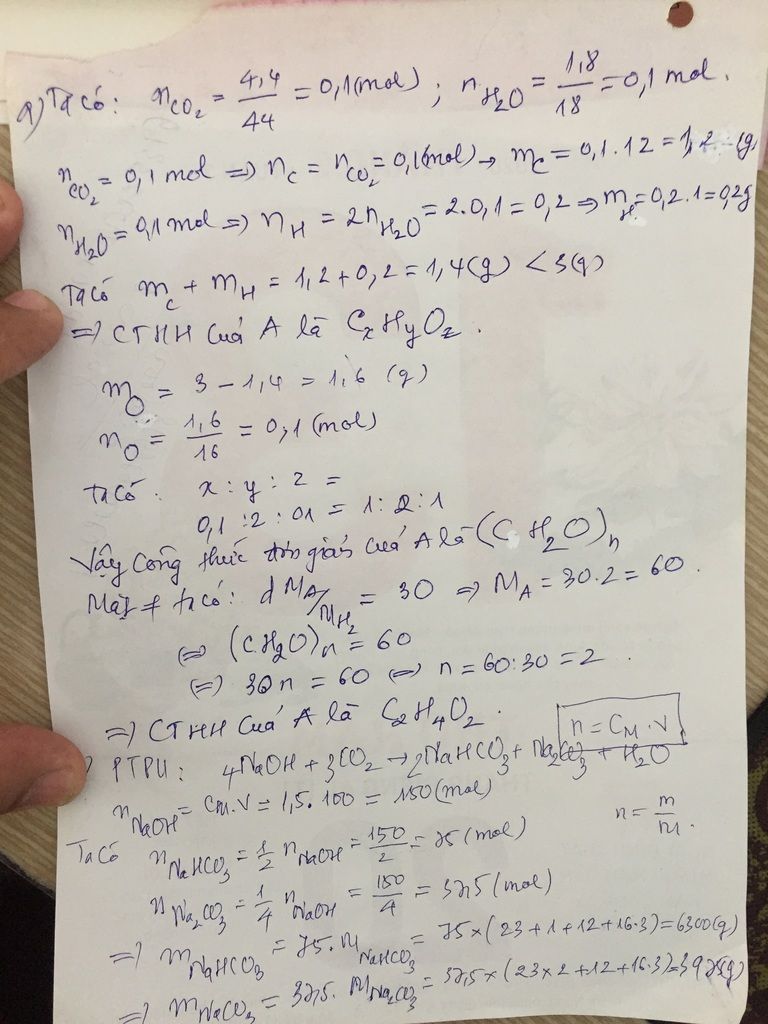 a) Ta có: nCO₂ = 4,4/44 = 0,1(mol) ; nH₂O = 1,8/18 = 0,1 mol.
nCO₂ = 0,1 mol => nC = nCO₂ = 0,1(mol) → mC = 0,1.12 = 1,2 (g)
nH₂O = 0,1 mol => nH = 2nH₂O = 2.0,1 = 0,2 => mH = 0,2.1 = 0,2g
Ta có mC + mH = 1,2 + 0,2 = 1,4(g) < 3(g)
=> CTHH cuả A là CxHyOz.
mO = 3 - 1,4 = 1,6 (g)
nO = 1,6/16 = 0,1 (mol)
Ta có. x : y : z =
0,1 : 2 : 01 = 1 : 2 : 1
Vậy công thức đơn giản cuả A là (CH₂O)n
Mặt ≠ ta có: d MA/MH₂ = 30 => MA = 30.2 = 60.
<=> (CH₂O)n = 60
<=> 30n = 60 <=> n = 60:30 = 2.
=> CTHH cuả A là C₂H₄O₂.
n = CM.V
PTPU: 4NaOH + 3CO₂ → 2NaHCO₃ + Na₂CO₃ + H₂O
nNaOH = CM.V = 1,5.100 = 150(mol)
n = m/M.
Ta có nNaHCO₃ = 1/2 nNaOH = 150/2 = 75 (mol)
nNa₂CO₃ = 1/4 nNaOH = 150/4 = 37,5 (mol)
=> mNaHCO₃ = 75.MNaHCO₃ = 75×(23+1+12+16.3) = 6300(g)
=> mNaCO₃ = 37,5. MNa₂CO₃ = 37,5×(23×2+12+16.3) = 3975(g)